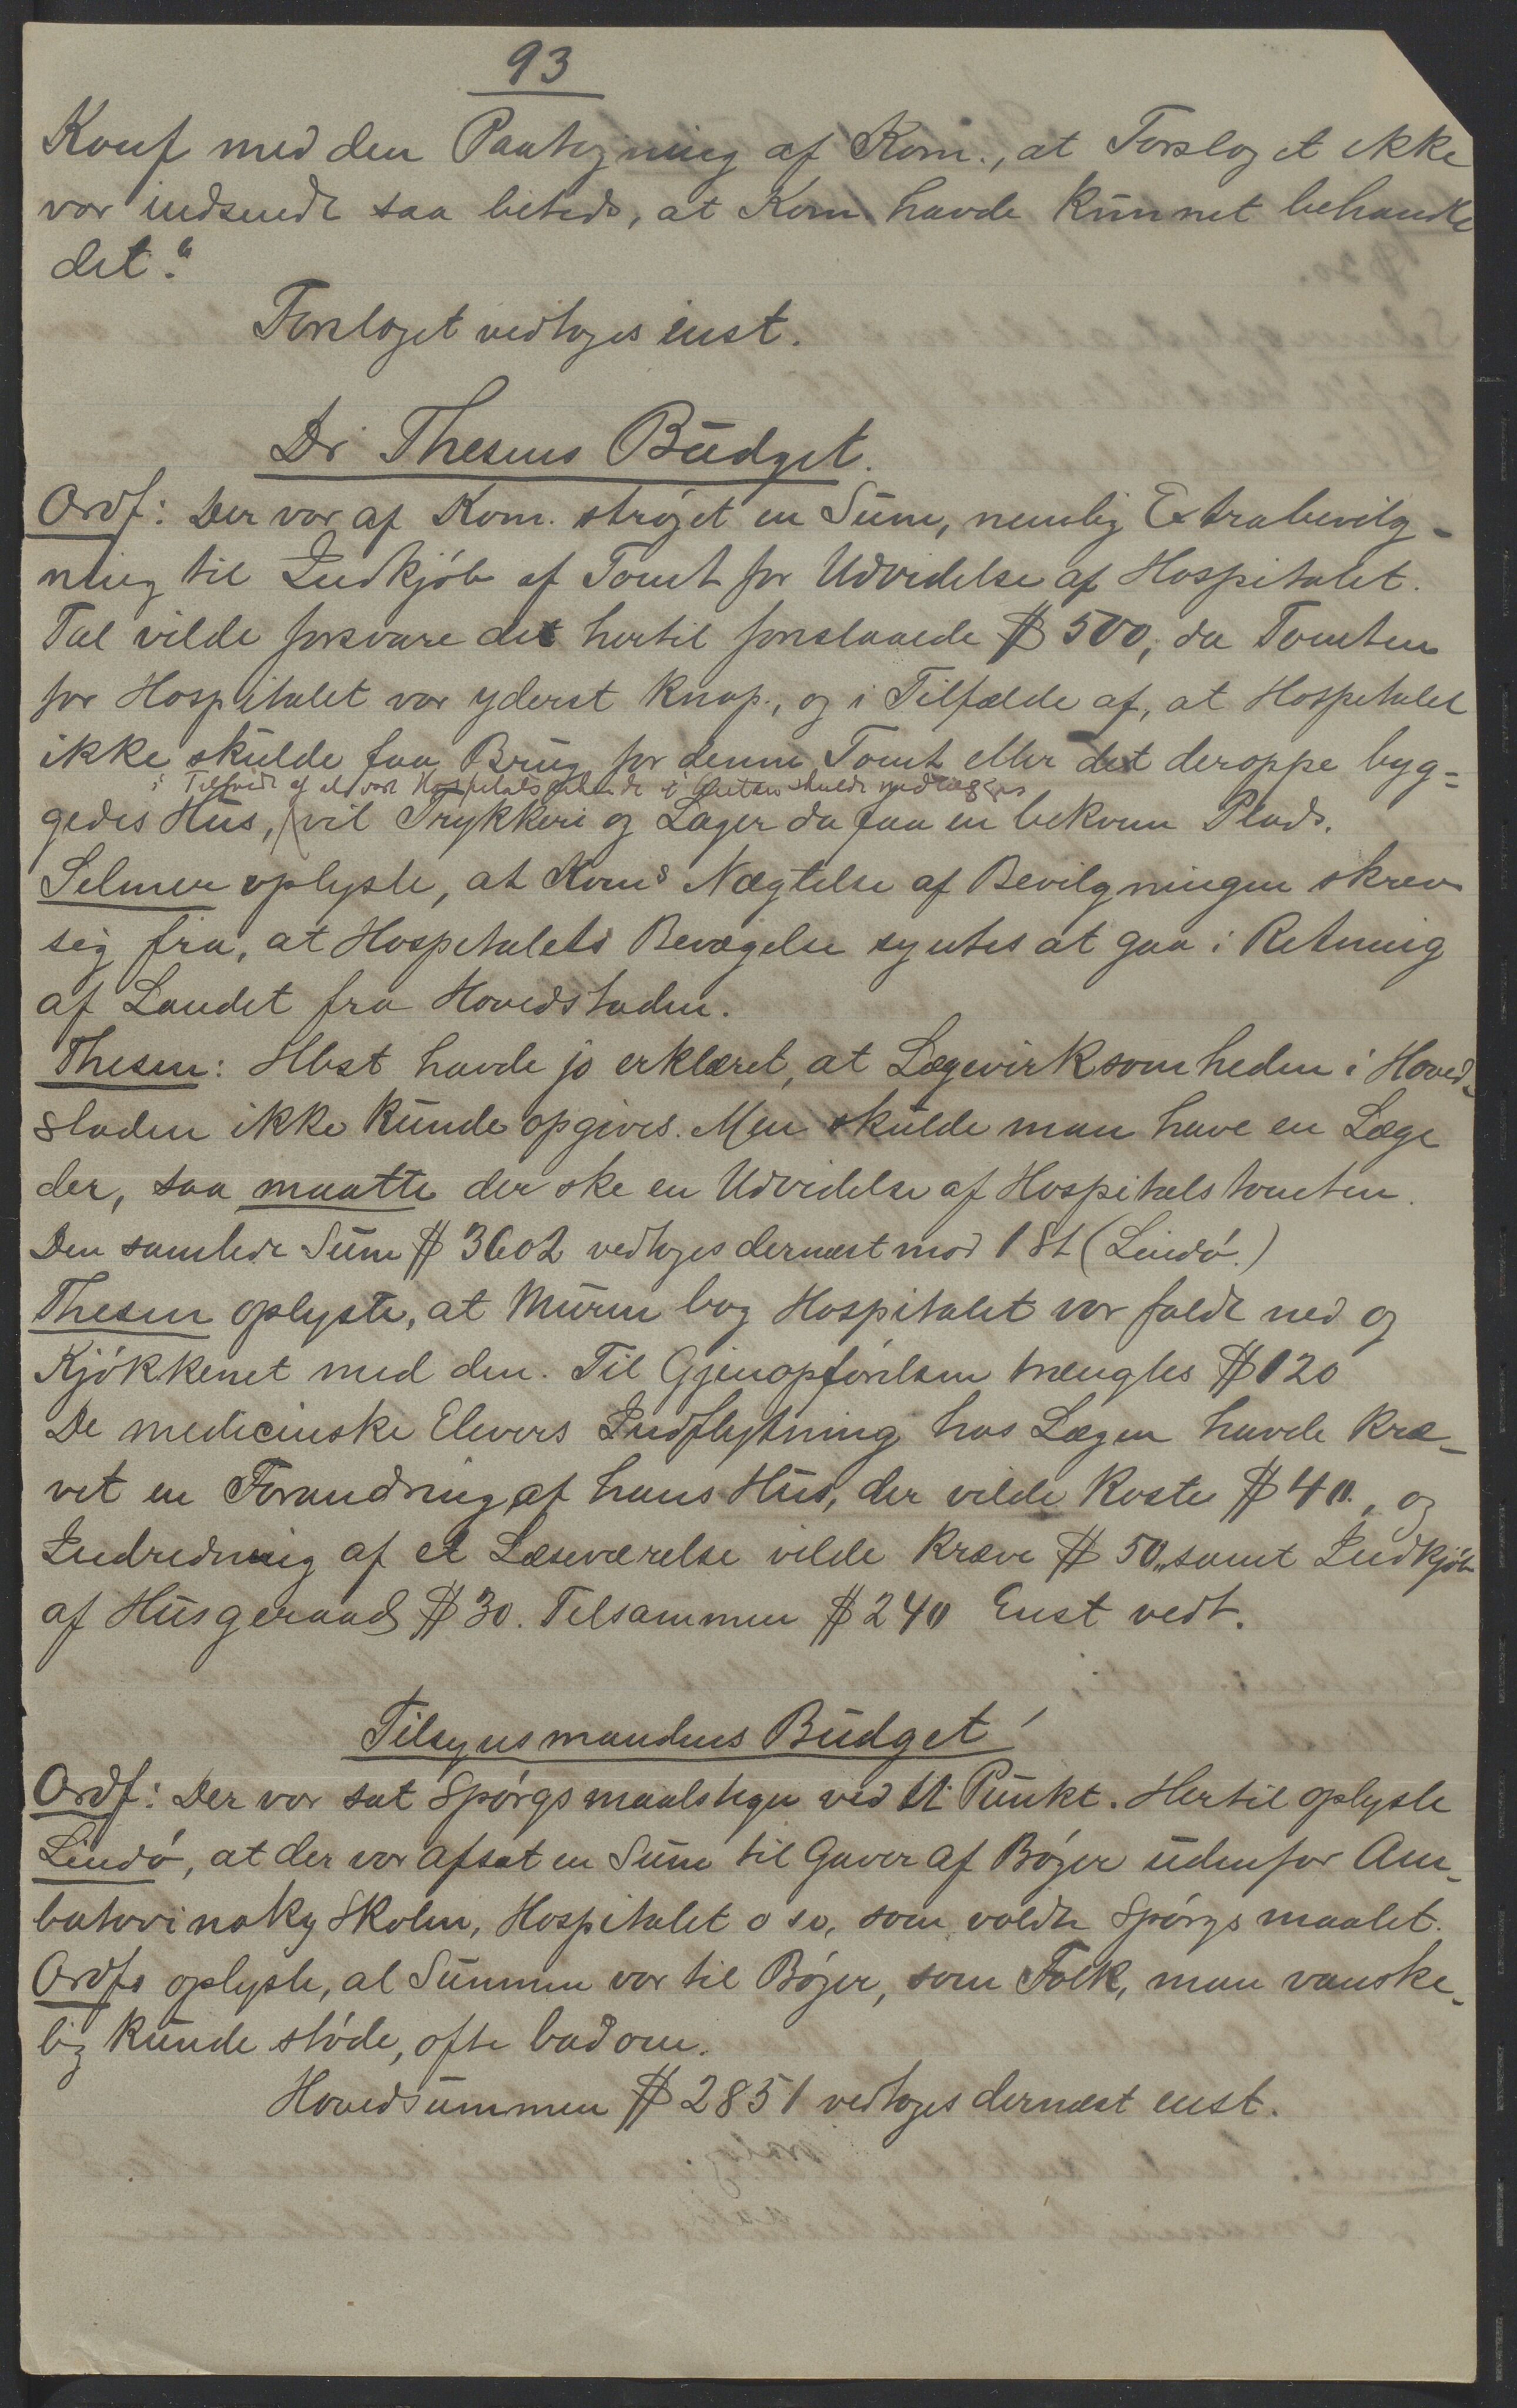 93
Konf med den Paategning af Kom., at Forslaget ikke
var indsendt saa betids, at Kom havde kunnet behandle
det."
Forslaget vedtoges enst.
Dr Thesens Budget.
Ordf: Der var af Kom. strøjet en Sum, nemlig Extrabevilg-
ning til Indkjøb af Tomt for Udvidelse af Hospitalet.
Tal vilde forsvare det hertil forslaaede $ 500, da Tomten
for Hospitalet var yderst knap, og i Tilfælde af, at Hospitalet
ikke skulde faa Brug for denne Tomt eller det deroppe byg-
i Tilfælde af at vort Hospitals skulde nedlægges
gedes Hus, vil Trykkeri og Lager da faa en bekvem Plads.
Selmer oplyste, at Koms Nægtelse af Bevilgningen skrev
sig fra, at Hospitalets Bevægelse syntes at gaa i Retning
af Landet fra Hovedstaden.
Thesen: Hbst havde jo erklæret, at Lægevirksomheden i Hoved-
staden ikke kunde opgives. Men skulde man have en Læge
der, saa maatte der ske en Udvidelse af Hospitalstomten.
Den samlede Sum $ 3602 vedtoges dernæst mod 1 St (Lindø.)
Thesen oplyste, at Muren bag Hospitalet var faldt ned og
Kjøkkenet med den. Til Gjenopførelsen trængtes $ 120
De medicinske Elevers Indflytning hos Lægen havde kræ-
vet en Forandring af hans Hus, der vilde koste $ 40., og
Indredning af et Læseværelse vilde kræve $ 50,, samt Indkjøb
af Husgeraad $ 30. Tilsammen $ 240 Enst vedt.
Tilsynsmandens Budget
Ordf: Der var sat Spørgsmaalstegn ved 11. Punkt. Hertil oplyste
Lindø, at der var afsat en Sum til Gaver af Bøger udenfor Am-
batovinaky Skolen, Hospitalet o so, som voldte Spørgsmaalet.
Ordfs oplyste, at Summen var til Bøger, som Folk, man vanske-
lig kunde støde, ofte bad om.
Hovedsummen $ 2851 vedtoges dernæst enst.